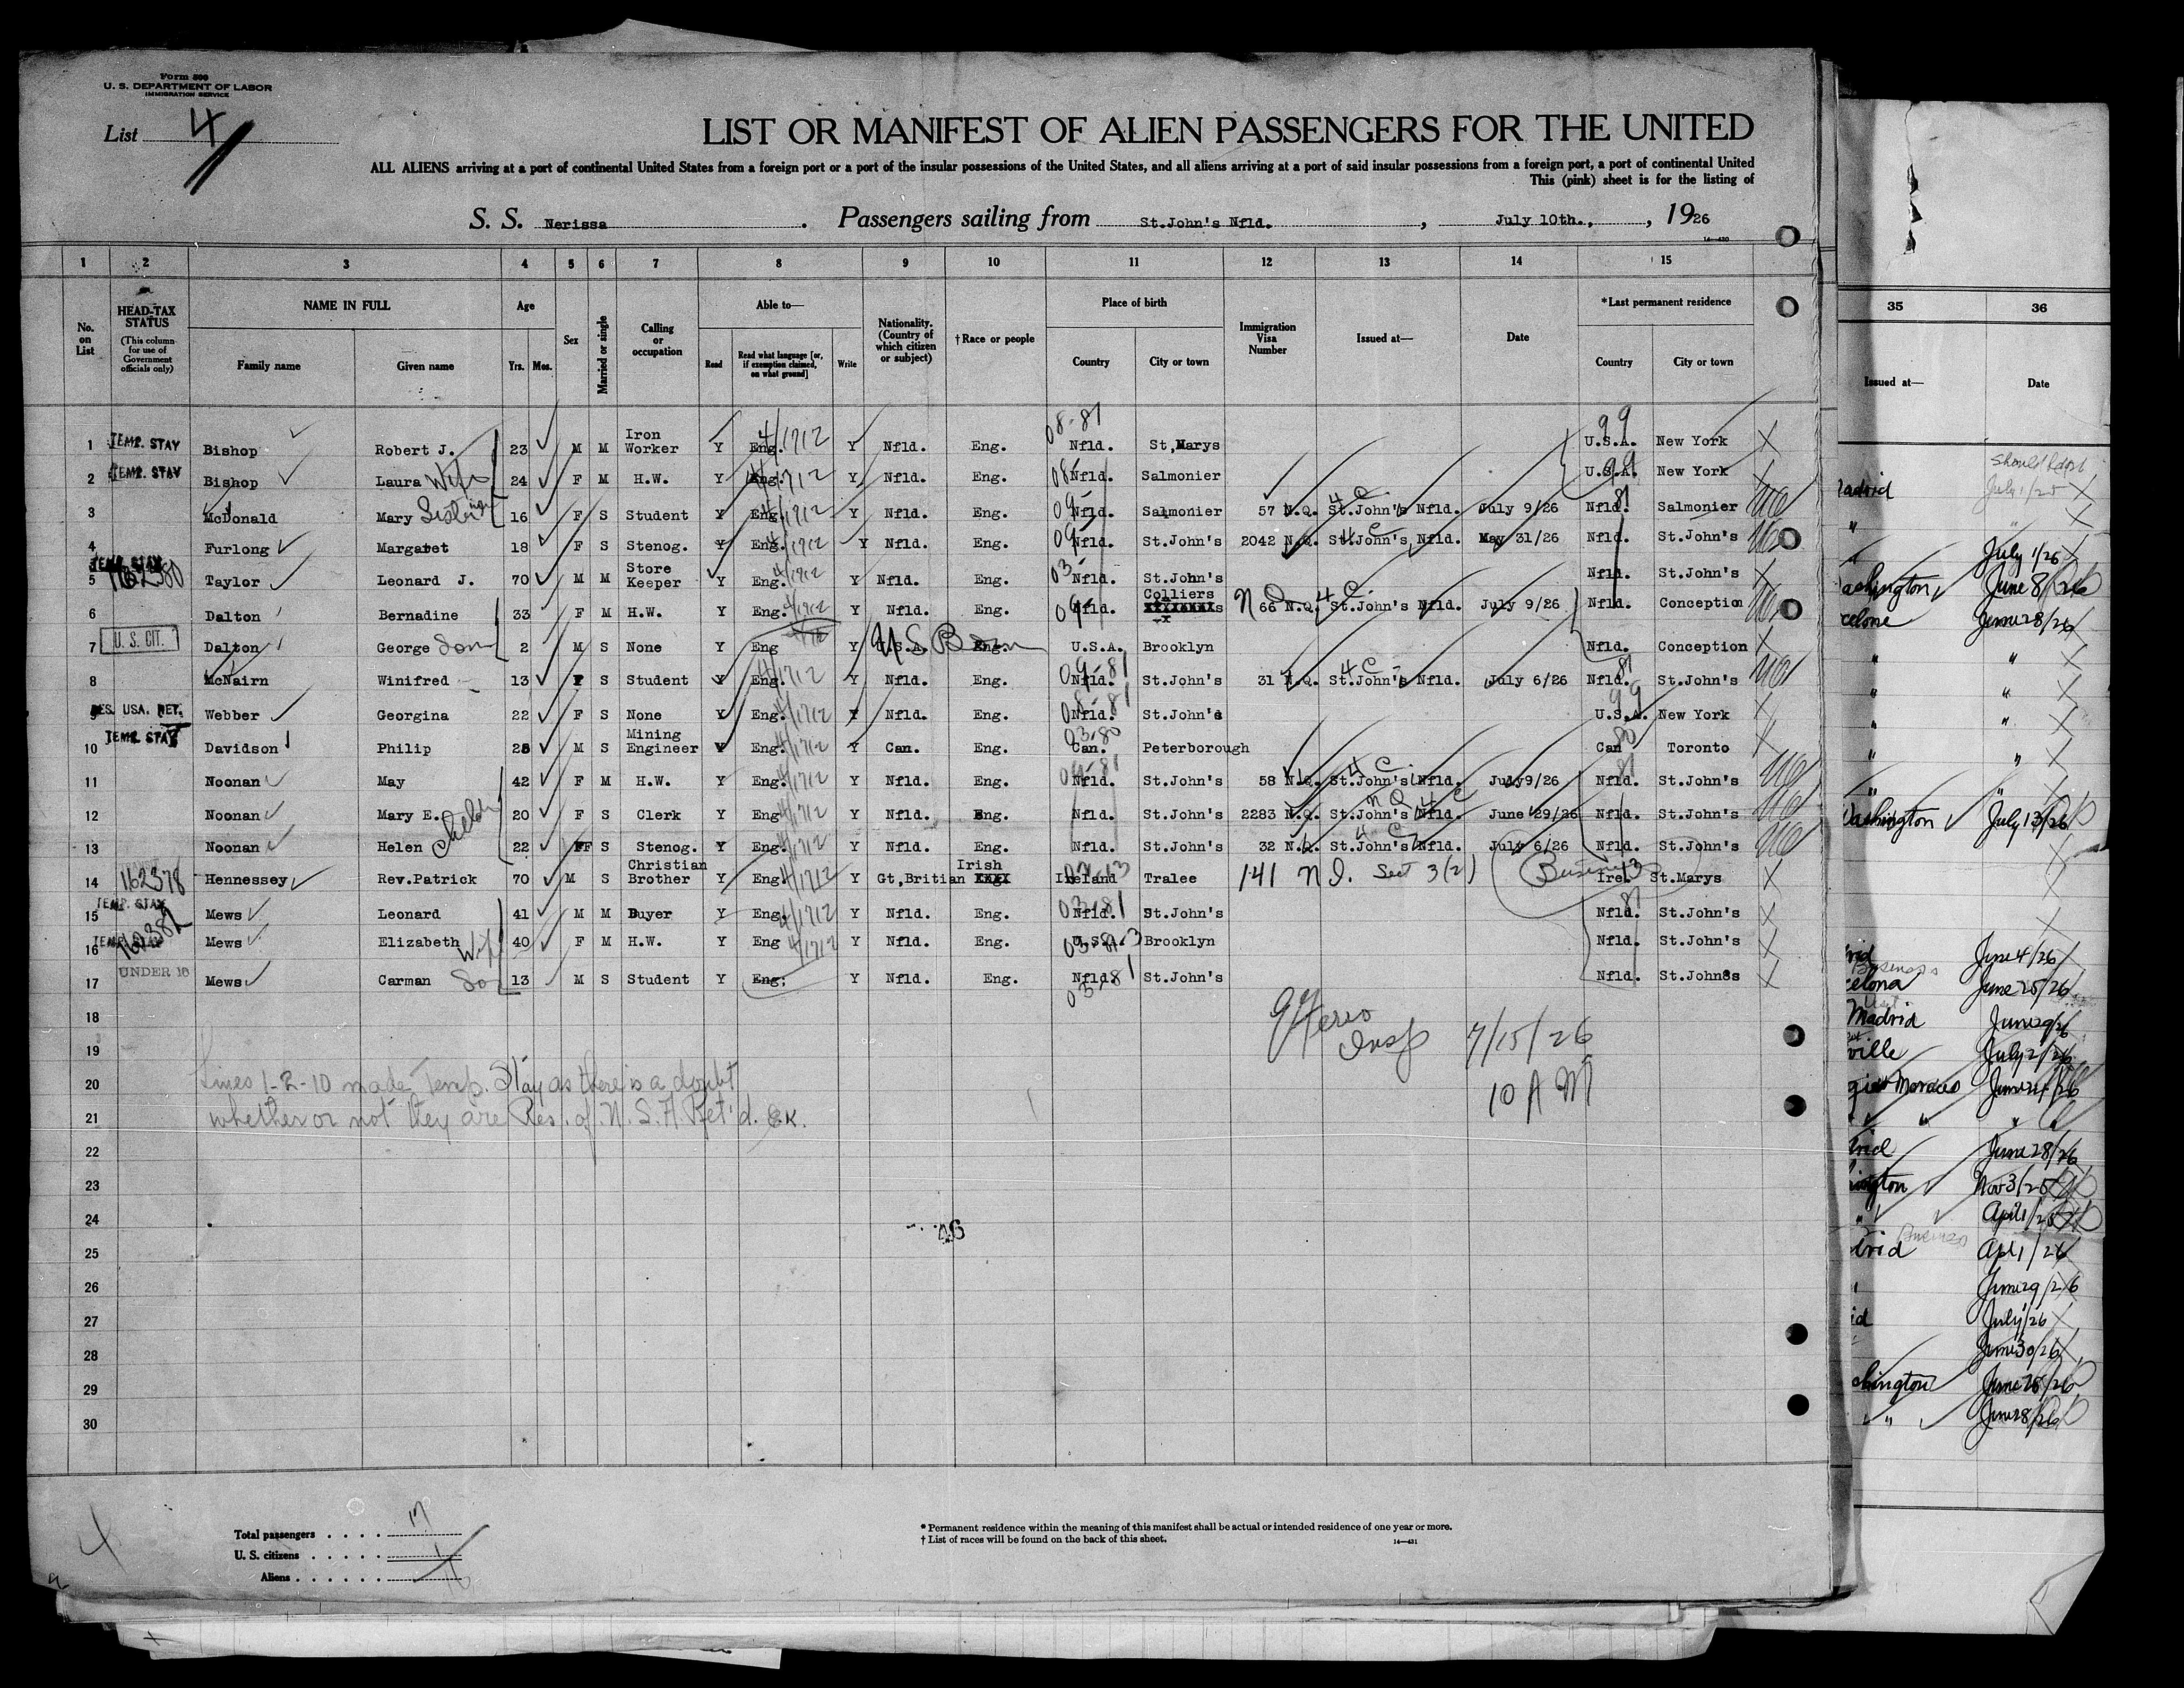 Form 500
U. S. DEPARTMENT OF LABOR
IMMIGRATION SERVICE
List 4
LIST OR MANIFEST OF ALIEN PASSENGERS FOR THE UNITED
ALL ALIENS arriving at a port of continental United States from a foreign port or a port of the insular possessions of the United States, and all aliens arriving at a port of said insular possessions from a foreign port, a port of continental United
This (pink) sheet is for the listing of
S. S. Nerissa. Passengers sailing from St.John's Nfld., July 10th., 1926
14-430
1 2 3 4 5 6 7 8 9 10 11 12 13 14 15
No. on List
HEAD-TAX STATUS (This column for use of Government officials only)
NAME IN FULL Family name Given name
Age Yrs. Mos.
Sex
Married or single
Calling or occupation
Able to— Read Read what language [or, if exemption claimed, on what ground] Write
Nationality. (Country of which citizen or subject)
†Race or people
Place of birth Country City or town
Immigration Visa Number
Issued at—
Date
*Last permanent residence Country City or town
35 36
Issued at— Date
1 TEMP. STAY Bishop Robert J. 23 M M Iron Worker Y Eng. 4/1712 Y Nfld. Eng. 08-81 Nfld. St,Marys 99 U.S.A. New York X
2 TEMP. STAY Bishop Laura Wife 24 F M H.W. Y Eng. 4/1712 Y Nfld. Eng. 08 Nfld. Salmonier 99 U.S.A. New York X
3 McDonald Mary 16 F S Student Y Eng. 4/1712 Y Nfld. Eng. 09 Nfld. Salmonier 57 N.Q. 4 C St.John's Nfld. July 9/26 81 Nfld. Salmonier
4 Furlong Margaret 18 F S Stenog. Y Eng. 4/1712 Y Nfld. Eng. 09 Nfld. St.John's 2042 N.Q. 4 C St.John's Nfld. May 31/26 Nfld. St.John's
5 TEMP. STAY 162380 Taylor Leonard J. 70 M M Store Keeper Y Eng. 4/1712 Y Nfld. Eng. 03- Nfld. St.John's Nfld. St.John's X
6 Dalton Bernadine 33 F M H.W. Y Eng. 4/1712 Y Nfld. Eng. 09 Nfld. Colliers N Q 66 N.Q. 4 C St.John's Nfld. July 9/26 Nfld. Conception
7 U. S. CIT. Dalton George Son 2 M S None Y Eng Y U.S.A. U.S. Born Eng. U.S.A. Brooklyn Nfld. Conception X
8 McNairn Winifred 13 F S Student Y Eng. 4/1712 Y Nfld. Eng. 09-81 Nfld. St.John's 31 N.Q. 4 C St.John's Nfld. July 6/26 81 Nfld. St.John's
9 RES. USA. RET. Webber Georgina 22 F S None Y Eng. 4/1712 Y Nfld. Eng. 08-81 Nfld. St.John's 99 U.S.A. New York X
10 TEMP. STAY Davidson Philip 28 M S Mining Engineer Y Eng. 4/1712 Y Can. Eng. 03-80 Can. Peterborough 80 Can Toronto X
11 Noonan May 42 F M H.W. Y Eng. 4/1712 Y Nfld. Eng. 09-81 Nfld. St.John's 58 N.Q. 4 C St.John's Nfld. July9/26 81 Nfld. St.John's
12 Noonan Mary E. 20 F S Clerk Y Eng. 4/1712 Y Nfld. Eng. Nfld. St.John's 2283 N.Q. NQ 4 C St.John's Nfld. June 29/26 Nfld. St.John's
13 Noonan Helen 22 F S Stenog. Y Eng. 4/1712 Y Nfld. Eng. Nfld. St.John's 32 N.Q. 4 C St.John's Nfld. July 6/26 Nfld. St.John's
14 TRANSIT 162378 Hennessey Rev.Patrick 70 M S Christian Brother Y Eng. 4/1712 Y Gt,Britian Irish Ireland Tralee 141 N I. Sect 3(2) Ire. 13 St.Marys X
15 TEMP. STAY Mews Leonard 41 M M Buyer Y Eng. 4/1712 Y Nfld. Eng. 03-81 Nfld. St.John's 81 Nfld. St.John's X
16 TEMP. STAY 162382 Mews Elizabeth Wife 40 F M H.W. Y Eng 4/1712 Y Nfld. Eng. U.S.A. Brooklyn Nfld. St.John's X
17 UNDER 16 Mews Carman Son 13 M S Student Y Eng. Y Nfld. Eng. 03-81 Nfld. St.John's Nfld. St.John8s X
18
19
Insp 7/15/26
10 AM
20 Lines 1-2-10 made Temp. Stay as there is a doubt
21 whether or not they are Res. of U.S.A. Ret'd. E.K.
22
23
24
46
25
26
27
28
29
30
Total passengers . . . . 17
U. S. citizens . . . . . 1
Aliens . . . . . . 16
4
* Permanent residence within the meaning of this manifest shall be actual or intended residence of one year or more.
† List of races will be found on the back of this sheet.
14—431
July 1/25
July 1/26
June 8/26
June 28/26
July 13/26
June 4/26
June 25/26
Madrid June 29/26
July 2/26
June 28/26
Nov 3/25
April 1/26
June 29/26
July 1/26
June 30/26
June 28/26
June 28/26